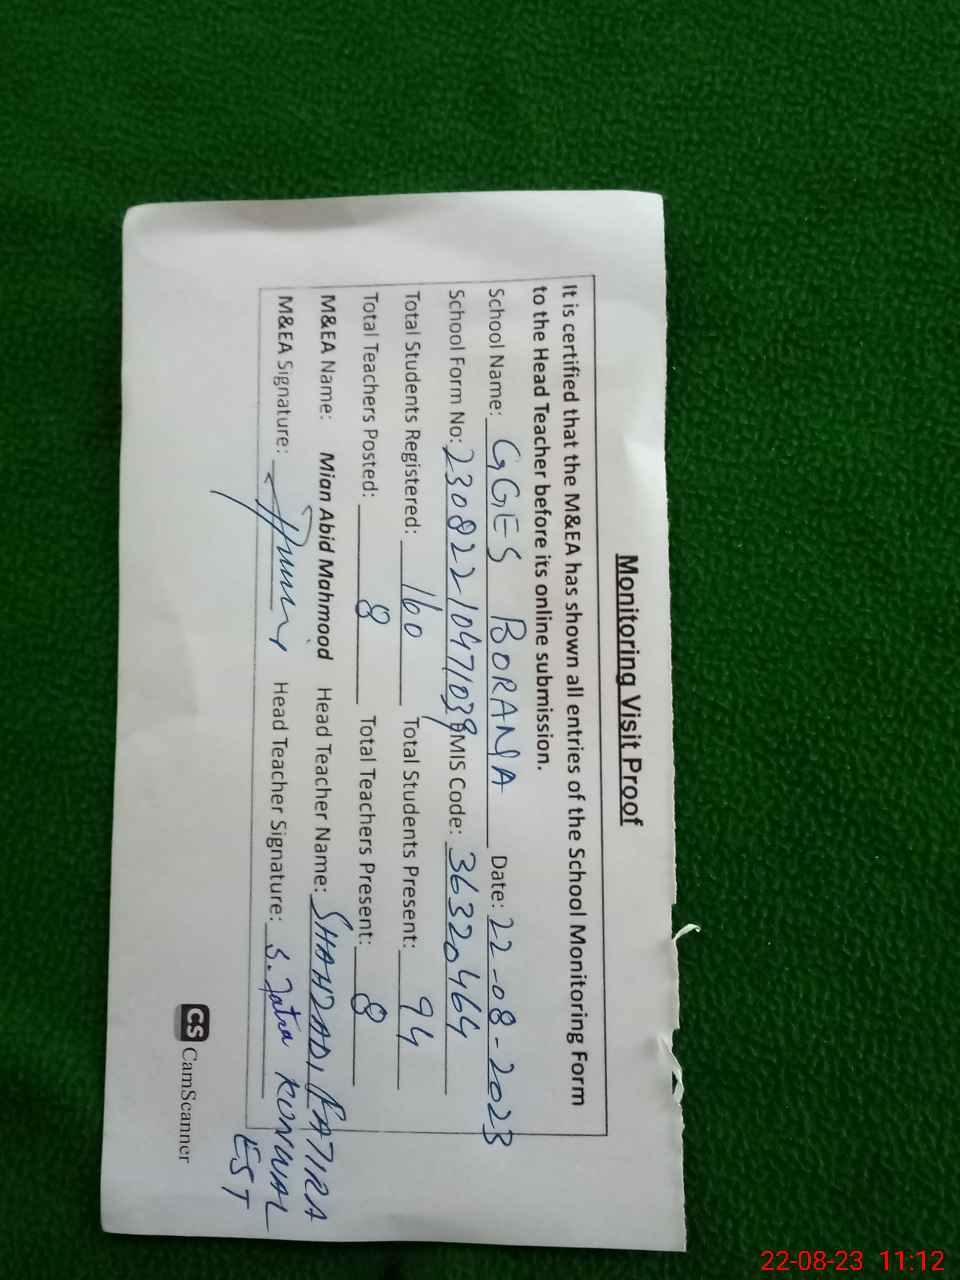 Monitoring Visit Proof
It is certified that the M&EA has shown all entries of the School Monitoring Form
to the Head Teacher before its online submission.
School Name: GGES BORANA Date: 22-08-2023
School Form No: 230822104710 MIS Code: 36320464
Total Students Registered: 160 Total Students Present: 94
Total Teachers Posted: 8 Total Teachers Present: 8
M&EA Name: Mian Abid Mahmood Head Teacher Name: SHAHZADI
M&EA Signature: Head Teacher Signature: S.
EST
CS CamScanner
22-08-23 11:12